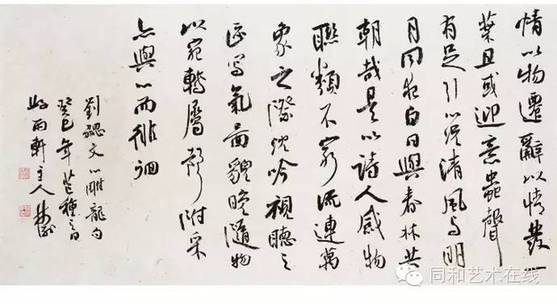 情以物遷辭以情發一
葉且或迎意蟲聲
有足引心況清風与明
月同夜白日與春林共
朝哉是以詩人感物
聯類不窮流連萬
象之際沈吟視聽之
區寫氣圖貌既隨物
以宛轉屬聲附采
亦與心而徘徊
劉勰文心雕龍句
癸巳年芒種之日
雨軒主人
同和艺术在线